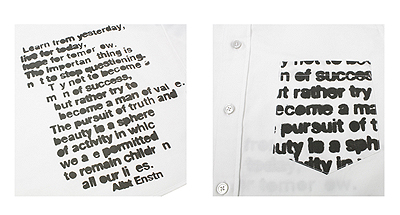 Learn from yesterday,
live for today,
hope for tomor ow.
The importan thing is
n t to stop questioning.
T y not to become
m n of success,
but rather try to
become a man of val e.
The pursuit of truth and
beauty is a sphere
of activity in whic
we a e permitted
to remain childr n
all our li es.
Albt Enstn
y not to bec
n of succes
but rather
ecome a ma
e pursuit of t
auty is a sph
ctivity in